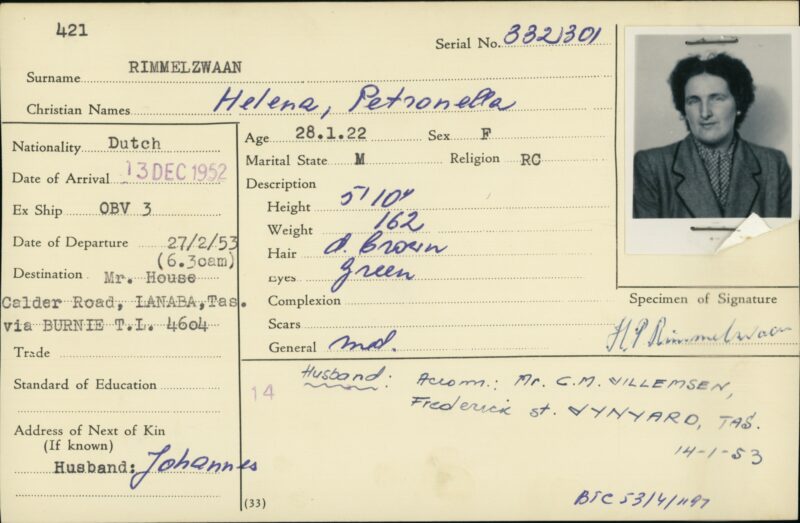 421
Serial No. 332301
Surname RIMMELZWAAN
Christian Names Helena, Petronella
Nationality Dutch
Date of Arrival 13 DEC 1952
Ex Ship OBV 3
Date of Departure 27/2/53
(6.30am)
Destination Mr. House
Calder Road, LANABA, Tas.
via BURNIE T.L. 4604
Trade
Standard of Education
Address of Next of Kin
(If known)
Husband: Johannes
Age 28.1.22 Sex F
Marital State M Religion RC
Description
Height 5'10"
Weight 162
Hair d. brown
Eyes green
Complexion
Scars
General md.
Specimen of Signature
H.P. Rimmelzwaan
14
Husband: Accom.: Mr. C.M. WILLEMSEN,
Frederick st. WYNYARD, TAS.
14-1-53
(33)